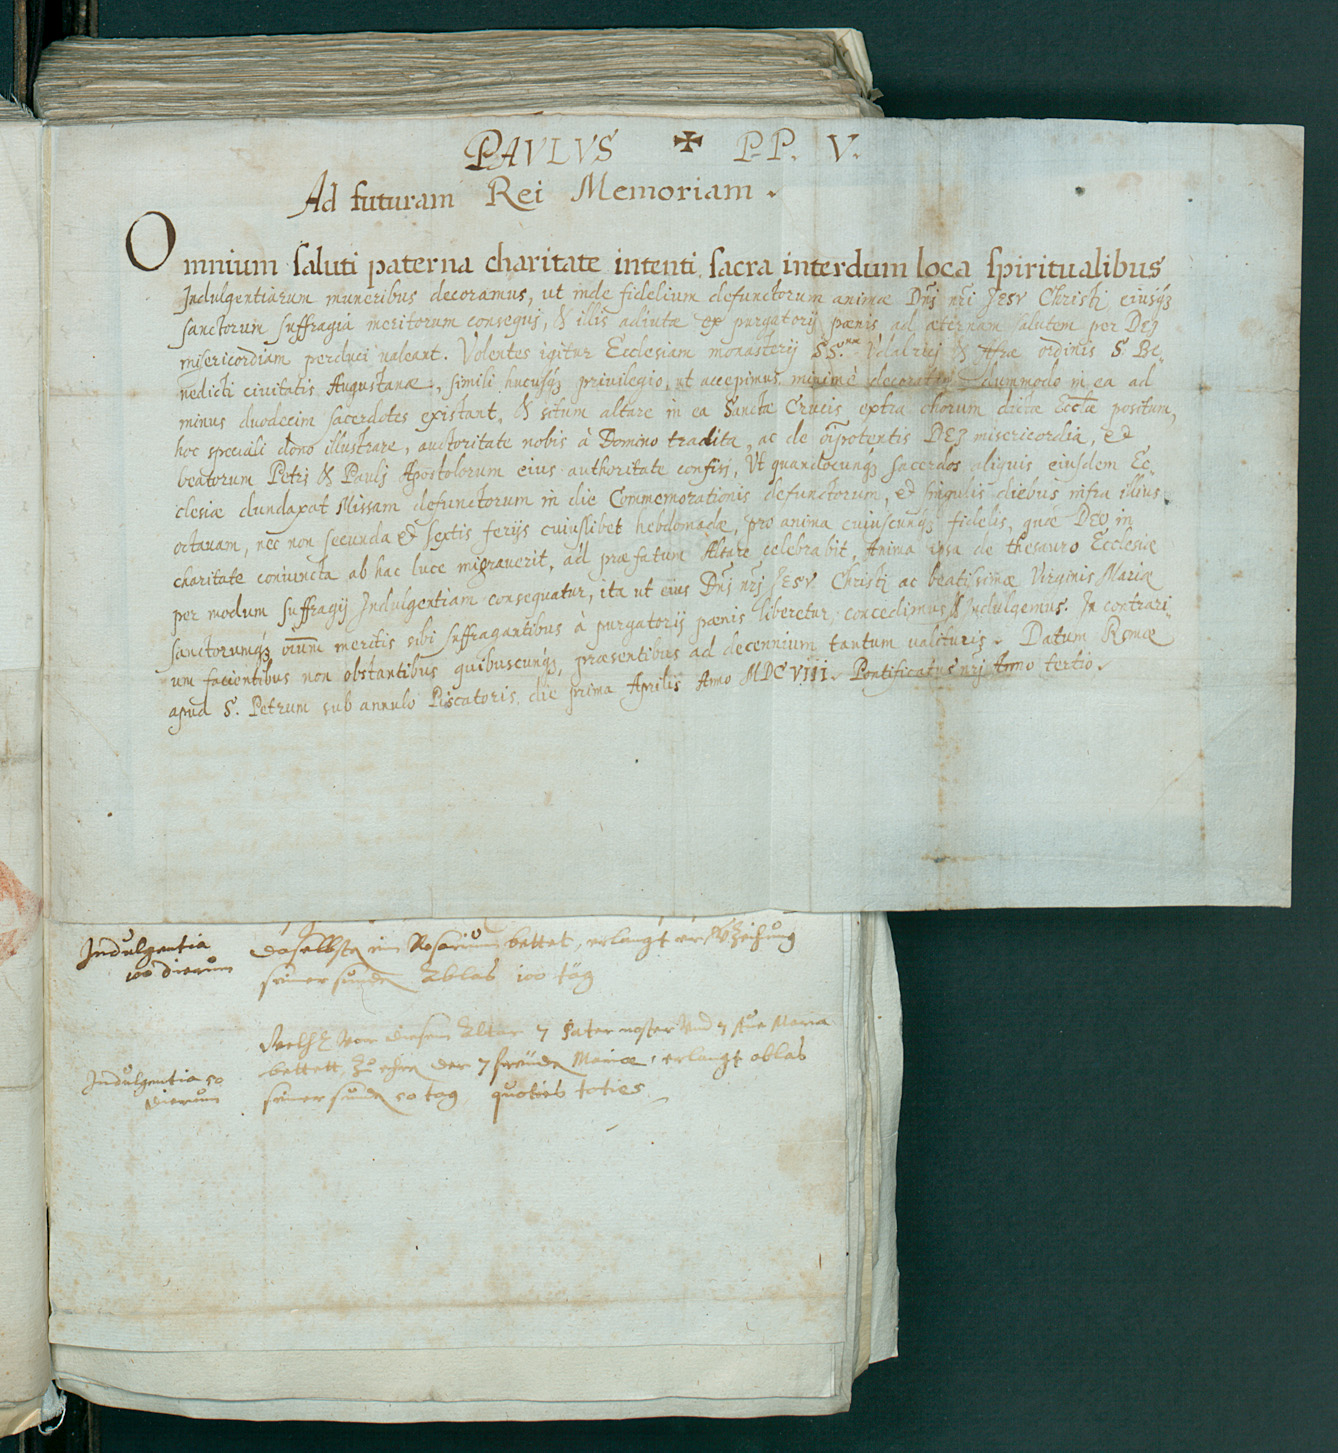 PAVLVS ✠ P.P. V.
Ad futuram Rei Memoriam.
Omnium saluti paterna charitate intenti sacra interdum loca spiritualibus
Indulgentiarum muneribus decoramus, ut inde fidelium defunctorum animæ Dñj nri JESV Christj eiusqȝ
sanctorum suffragia meritorum consequi, & illis adiutæ ex purgatorij pœnis ad æternam salutem per DEJ
misericordiam perduci ualeant. Volentes igitur Ecclesiam monasterij SS. Vdalrici & Afræ ordinis S. Be-
nedicti ciuitatis Augustanæ, simili hucusqȝ priuilegio, ut accepimus, minimè decoratam dummodo in ea ad
minus duodecim sacerdotes existant, & situm altare in ea Sanctæ Crucis extra chorum dictæ Ecctæ positum,
hoc speciali dono illustrare, auctoritate nobis à Domino tradita, ac de oīpotentis DEJ misericordia, et
beatorum Petri & Paulj Apostolorum eius authoritate confisj, Vt quandocunqȝ sacerdos aliquis eiusdem Ec-
clesiæ dundaxat Missam defunctorum in die Commemorationis defunctorum, et singulis diebus infra illius
octauam, nec non secunda et sextis ferijs cuiuslibet hebdomadæ, pro anima cuiuscunqȝ fidelis, quæ DEO in
charitate coniuncta ab hac luce migrauerit, ad præfatum Altare celebrabit, Anima ipsa de thesauro Ecclesiæ
per modum suffragij Indulgentiam consequatur, ita ut eius Dñj nrj JESV Christj ac beatissimæ Virginis Mariæ
sanctorumqȝ oīum meritis sibi suffragantibus à purgatorij pœnis liberetur, concedimus & Indulgemus. In contrari-
um facientibus non obstantibus quibuscunqȝ, præsentibus ad decennium tantum ualituris. Datum Romæ
apud S. Petrum sub annulo Piscatoris, die prima Aprilis Anno MDCVIII. Pontificatus nrj Anno tertio.
Indulgentia 100 dierum
daselbsten ein Rosarium bettet, erlangt er
seiner sünden Ablas 100 täg
Indulgentia 50 dierum
Welche vor diesem Altar 7 Pater noster vnd 7 Aue Maria
bettett, zu ehren der 7 freüden Mariæ, erlangt ablas
seiner sünden 50 tag quoties toties.